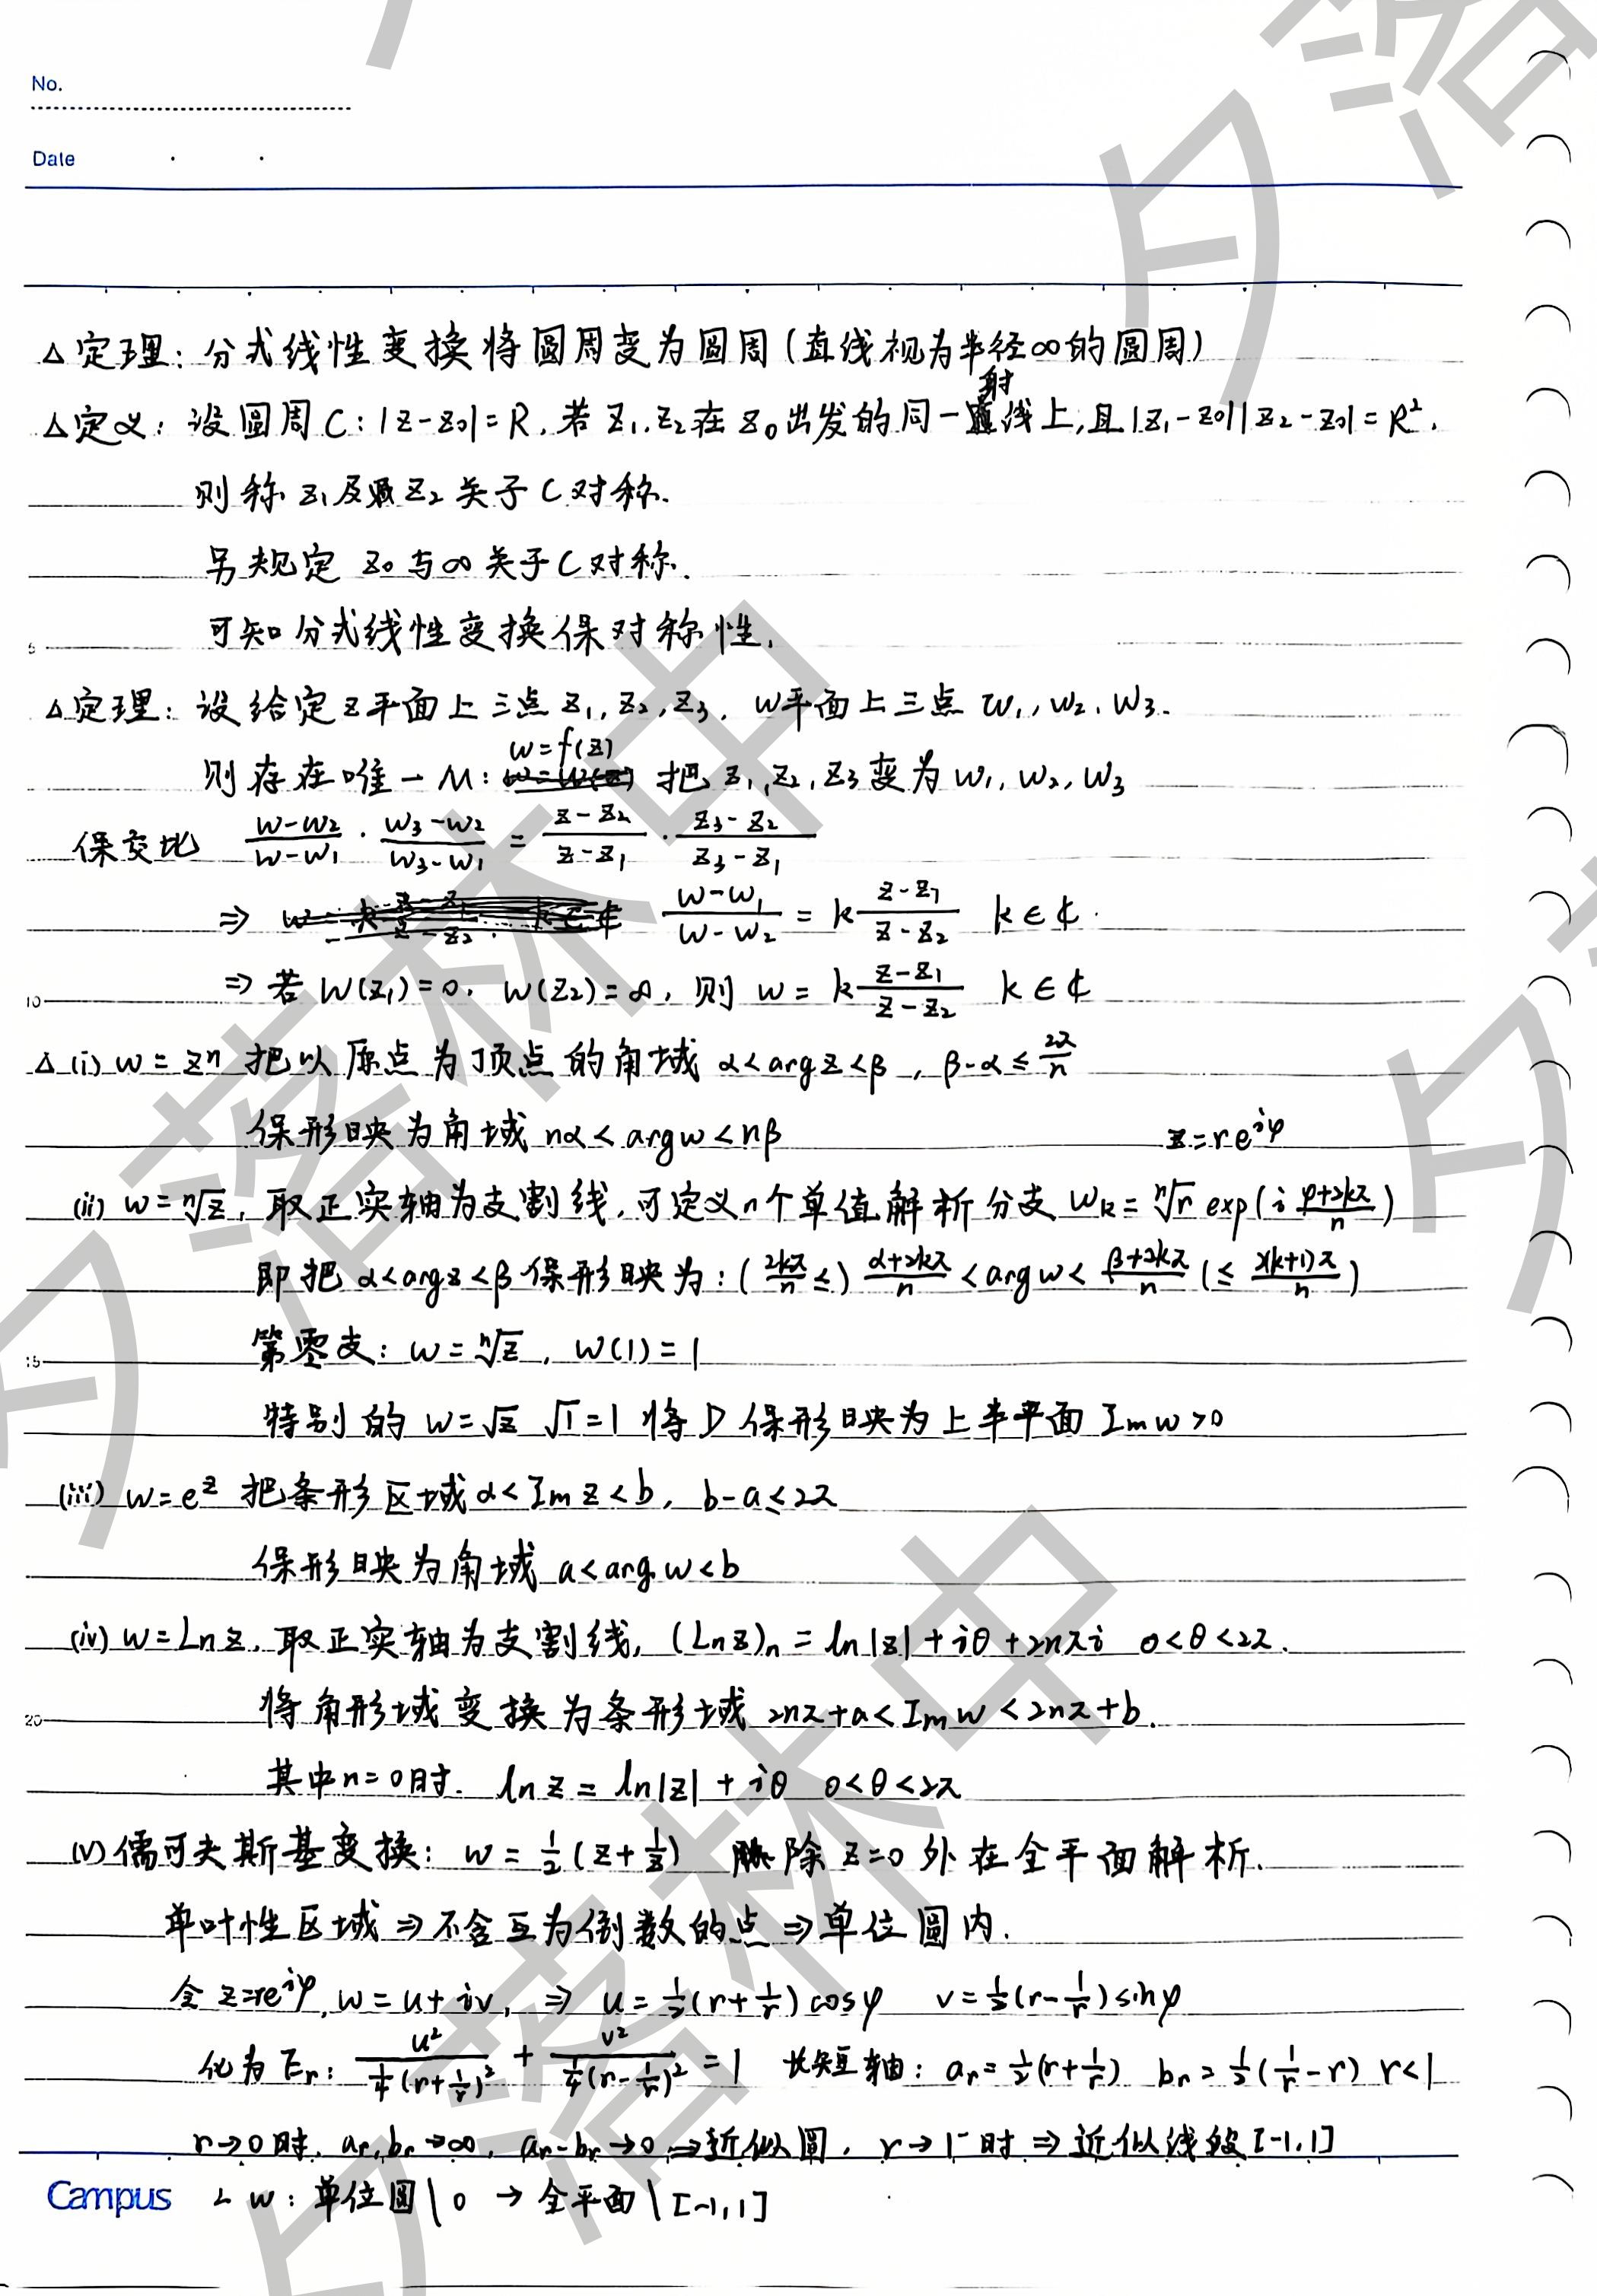 No.
Date
△定理：分式线性变换将圆周变为圆周（直线视为半径∞的圆周）
△定义：设圆周 C：|z-z₀|=R，若 z₁，z₂在 z₀出发的同一射线上，且|z₁-z₀||z₂-z₀|=R²，
则称 z₁及z₂关于C对称．
另规定 z₀与∞关于C对称．
可知分式线性变换保对称性．
△定理：设给定z平面上三点 z₁，z₂，z₃，w平面上三点 w₁，w₂，w₃．
则存在唯一 M：w=f(z) 把 z₁，z₂，z₃变为 w₁，w₂，w₃
保交比 (w-w₂)/(w-w₁)·(w₃-w₂)/(w₃-w₁) = (z-z₂)/(z-z₁)·(z₃-z₂)/(z₃-z₁)
⇒ (w-w₁)/(w-w₂) = k (z-z₁)/(z-z₂) k∈ℂ．
⇒若 w(z₁)=0，w(z₂)=∞，则 w = k (z-z₁)/(z-z₂) k∈ℂ
△(i) w=zⁿ 把以原点为顶点的角域 α<arg z<β，β-α≤2π/n
保形映为角域 nα<arg w<nβ z=re^{iφ}
(ii) w=ⁿ√z，取正实轴为支割线，可定义n个单值解析分支 w_k=ⁿ√r exp(i (φ+2kπ)/n)
即把 α<arg z<β 保形映为：(2kπ/n ≤) (α+2kπ)/n < arg w < (β+2kπ)/n (≤ 2(k+1)π/n)
第零支：w=ⁿ√z，w(1)=1
特别的 w=√z √1=1 将D保形映为上半平面 Im w>0
(iii) w=e^z 把条形区域 a<Im z<b，b-a≤2π
保形映为角域 a<arg w<b
(iv) w=Ln z，取正实轴为支割线，(Ln z)ₙ = ln|z|+iθ+2nπi 0<θ<2π．
将角形域变换为条形域 2nπ+a<Im w<2nπ+b．
其中n=0时．ln z=ln|z|+iθ 0<θ<2π
(v)儒可夫斯基变换：w=1/2(z+1/z) 除 z=0 外在全平面解析．
单叶性区域⇒不含互为倒数的点⇒单位圆内．
令 z=re^{iφ}，w=u+iv，⇒ u=1/2(r+1/r)cosφ v=1/2(r-1/r)sinφ
化为 E_r：u²/(1/4(r+1/r)²) + v²/(1/4(r-1/r)²) = 1 长短轴：a_r=1/2(r+1/r) b_r=1/2(1/r-r) r<1
r→0时，a_r，b_r→∞，a_r-b_r→0⇒近似圆，r→1⁻时⇒近似线段[-1,1]
Campus ∴ w：单位圆\0 → 全平面\[-1,1]
夕落林中
夕落林中
夕落
夕